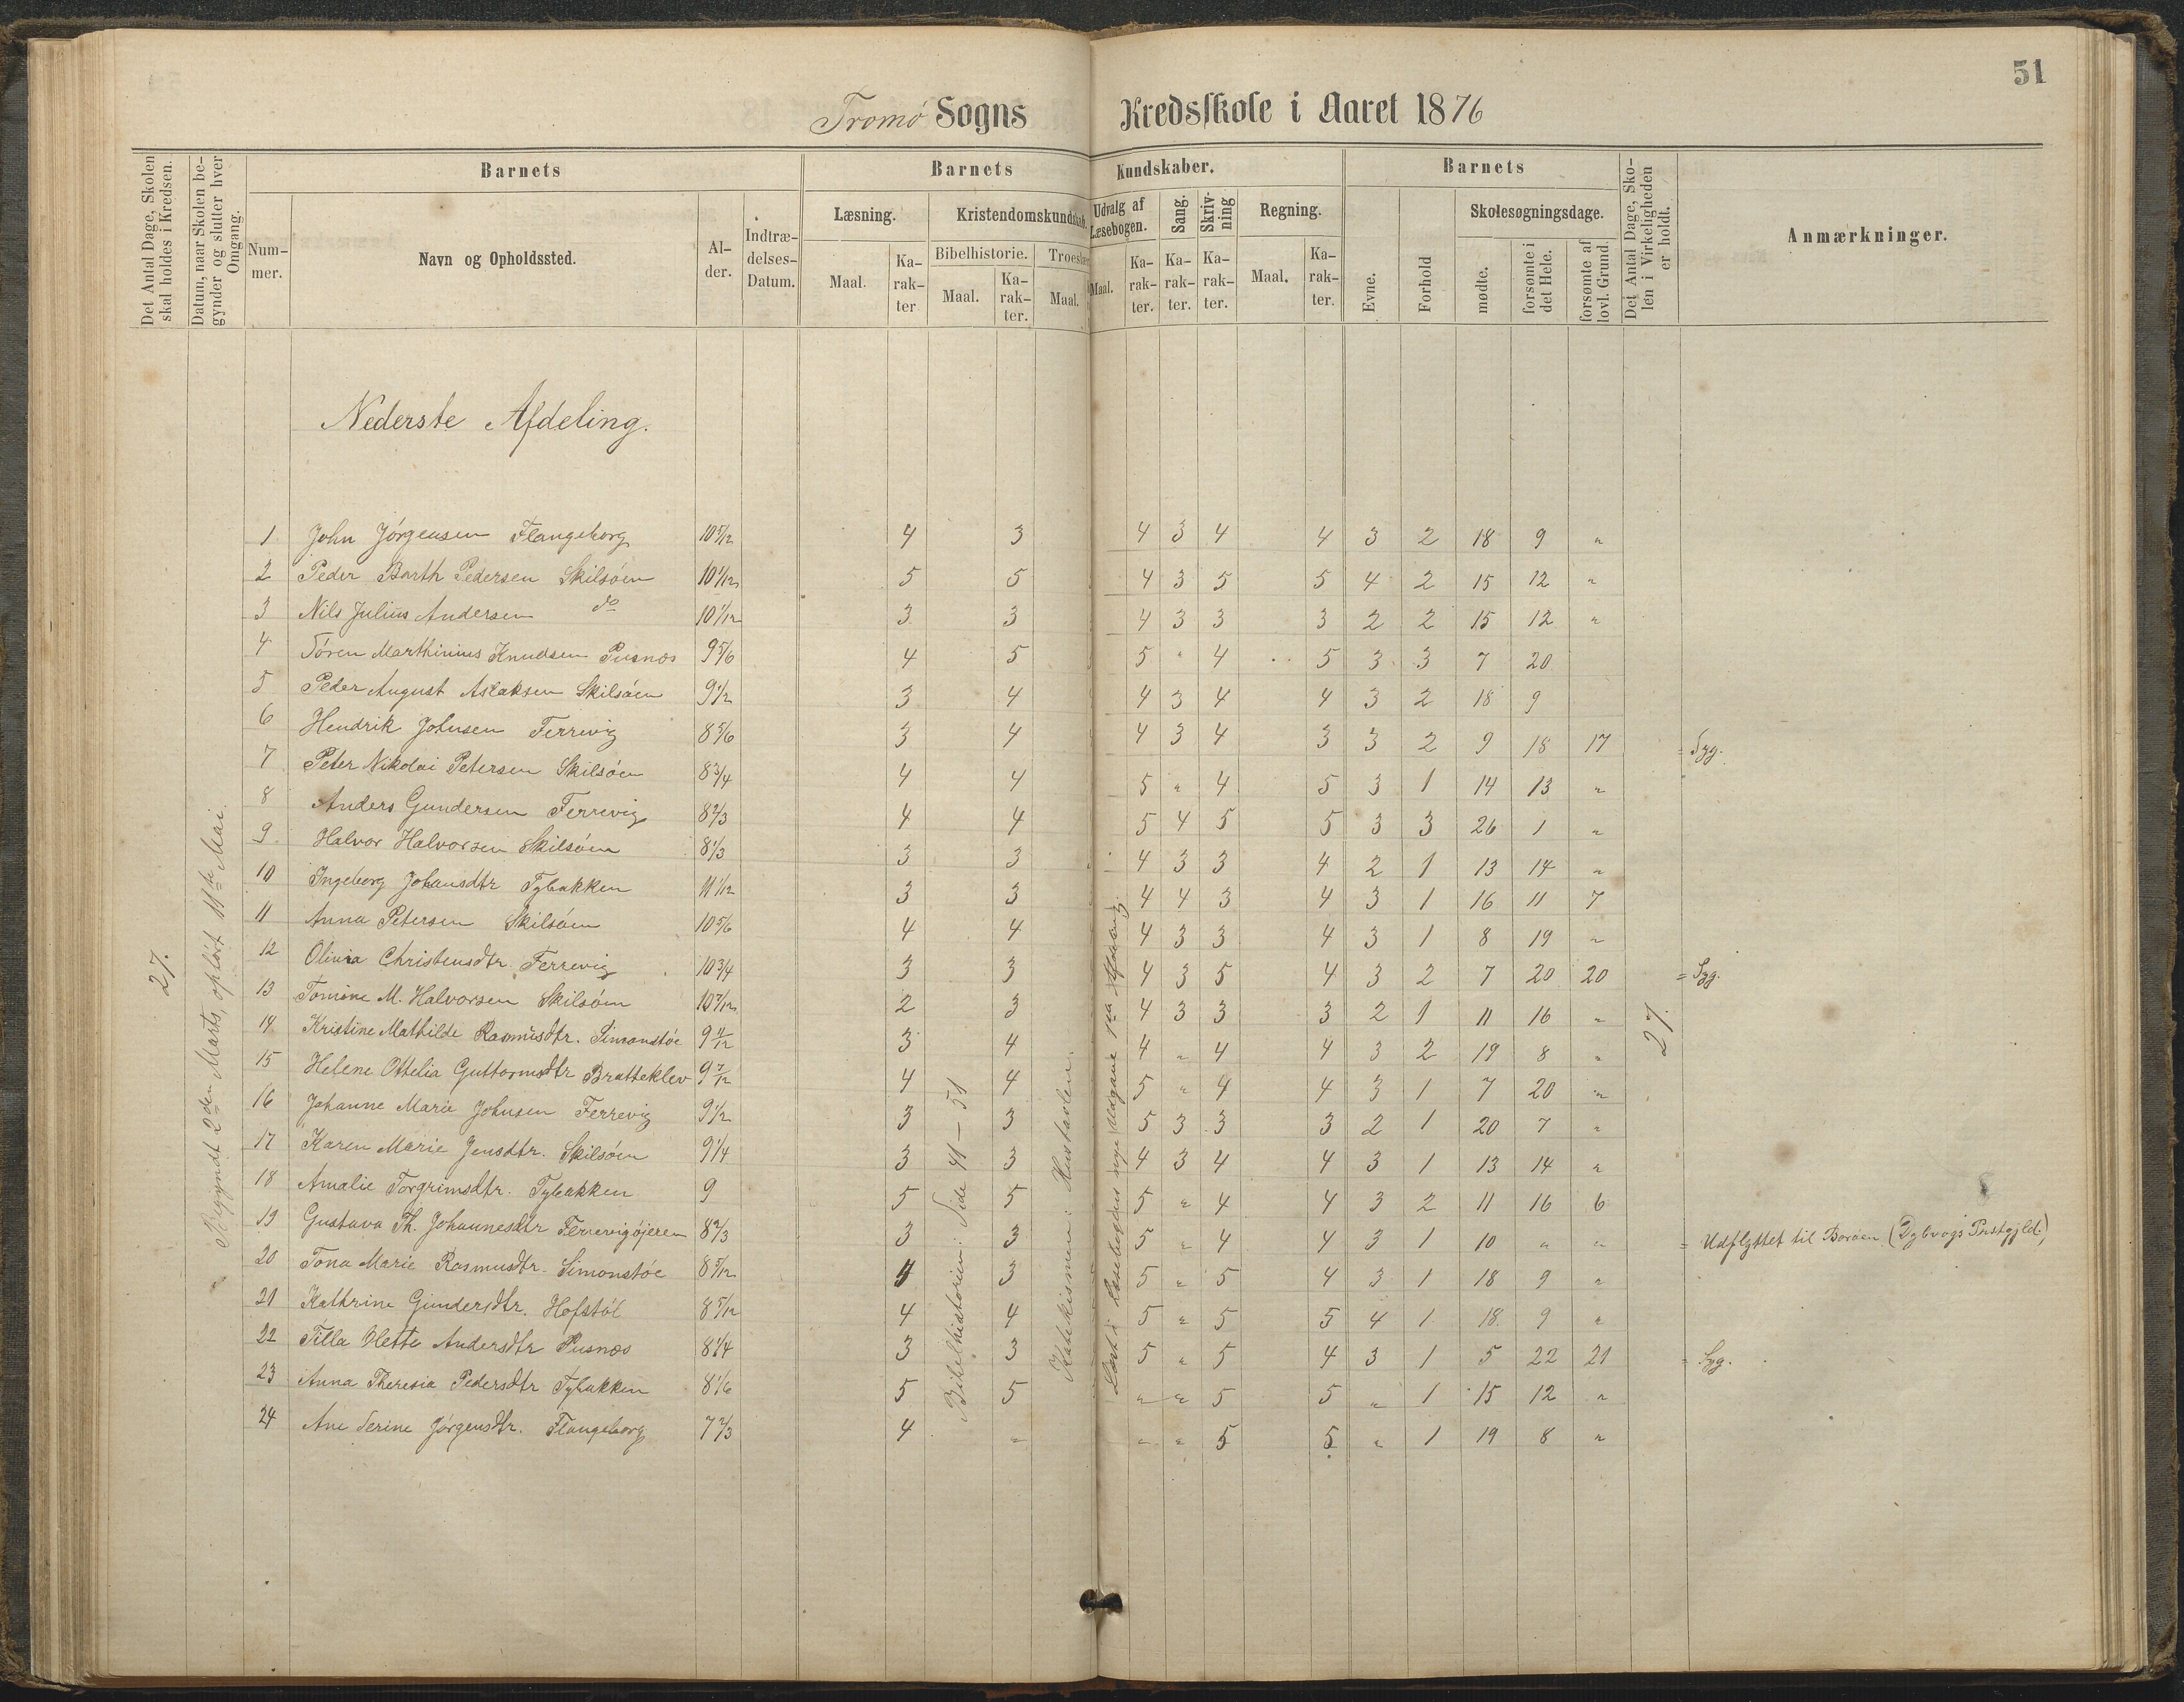 51
Tromø Sogns Kredsskole i Aaret 1876
Det Antal Dage, Skolen skal holdes i Kredsen.
Datum, naar Skolen begynder og slutter hver Omgang.
Barnets
Barnets Kundskaber.
Barnets
Det Antal Dage, Skolen i Virkeligheden er holdt.
Anmærkninger.
Nummer.
Navn og Opholdssted.
Alder.
Indtrædelses-Datum.
Læsning.
Kristendomskundskab.
Udvalg af Læsebogen.
Sang.
Skrivning
Regning.
Evne.
Forhold
Skolesøgningsdage.
Bibelhistorie.
Maal. Karakter Maal. Karakter. Maal. Maal. Karakter. Karakter. Karakter. Maal. Karakter.
mødte.
forsømte i det Hele.
forsømte af lovl. Grund.
Nederste Afdeling.
27.
Begyndt 2den Marts, ophørt 11te Mai.
Bibelhistorien: Side 41-51
Katekismen: Hustavlen.
27.
1 John Jörgensen Flangeborg 10 5/12 4 3 4 3 4 4 3 2 18 9 "
2 Peder Barth Pedersen Skilsöen 10 1/12 5 5 4 3 5 5 4 2 15 12 "
3 Nils Julius Andersen do 10 1/12 3 3 4 3 3 3 2 2 15 12 "
4 Sören Marthinius Knudsen Pusnæs 9 5/6 4 5 5 " 4 5 3 3 7 20
5 Peder August Aslaksen Skilsöen 9 1/2 3 4 4 3 4 4 3 2 18 9
6 Hendrik Johnsen Færrevig 8 5/6 3 4 4 3 4 3 3 2 9 18 17 = Syg.
7 Peter Nikolai Petersen Skilsöen 8 3/4 4 4 5 " 4 5 3 1 14 13 "
8 Anders Gundersen Færrevig 8 2/3 4 4 5 4 5 5 3 3 26 1 "
9. Halvor Halvorsen Skilsöen 8 1/3 3 3 4 3 3 4 2 1 13 14 "
10 Ingeborg Johansdtr Tybakken 11 1/12 3 3 4 4 3 4 3 1 16 11 7
11 Anna Petersen Skilsöen 10 5/6 4 4 4 3 3 4 3 1 8 19 "
12 Olivia Christensdtr. Færrevig 10 3/4 3 3 4 3 5 4 3 2 7 20 20 = Syg.
13 Tomine M. Halvorsen Skilsöen 10 7/12 2 3 4 3 3 3 2 1 11 16 "
14 Kristine Mathilde Rasmusdtr. Simonstöe 9 11/12 3 4 4 " 4 4 3 2 19 8 "
15 Helene Ottelia Guttormsdtr Bratteklev 9 7/12 4 4 5 " 4 4 3 1 7 20 "
16 Johanne Marie Johnsen Færrevig 9 1/2 3 3 5 3 3 3 2 1 20 7 "
17 Karen Marie Jensdtr. Skilsöen 9 1/4 3 3 4 3 4 4 3 1 13 14 "
18 Amalie Torgrimsdtr. Tybakken 9 5 5 5 " 4 4 3 2 11 16 6
19 Gustava Th. Johannesdtr Færrevigöjeren 8 2/3 3 3 5 " 4 4 3 1 10 " " = Udflyttet til Boröen (Dybvogs Prstgjld.)
20 Tona Marie Rasmusdtr. Simonstöe 8 5/12 4 3 5 " 5 4 3 1 18 9 "
21 Kathrine Gundersdtr. Hofstöl 8 5/12 4 4 5 " 5 5 4 1 18 9 "
22 Tilla Olette Andersdtr Pusnæs 8 1/4 3 3 5 " 5 4 3 1 5 22 21 = Syg.
23 Anna Theresia Pedersdtr Tybakken 8 1/6 5 5 " " 5 5 " 1 15 12 "
24 Ane Serine Jörgensdtr. Flangeborg 7 2/3 4 " " " 5 5 " 1 19 8 "